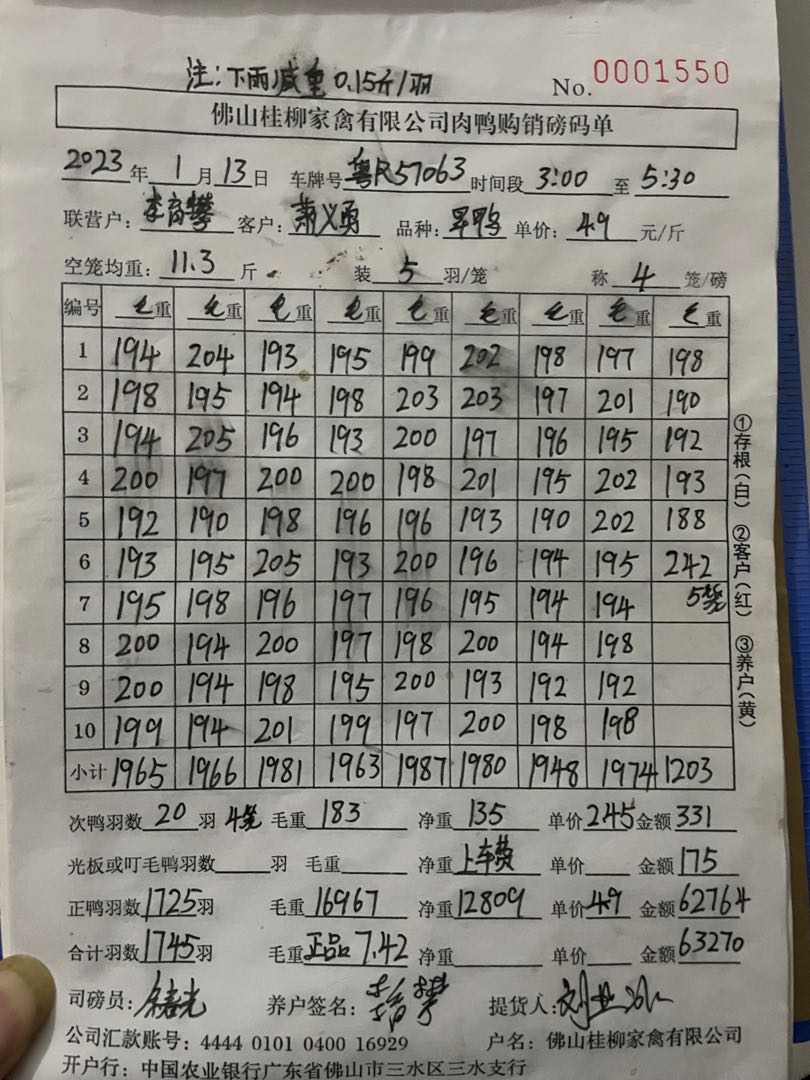 注:下雨减重0.15斤/羽
No. 0001550
佛山桂柳家禽有限公司肉鸭购销磅码单
2023年1月13日 车牌号粤R57063 时间段3:00至5:30
联营户: 李育攀 客户: 萧义勇 品种: 旱鸭 单价: 49 元/斤
空笼均重: 11.3 斤 装 5 羽/笼 称 4 笼/磅
编号 毛重 毛重 毛重 毛重 毛重 毛重 毛重 毛重 毛重
1 194 204 193 195 199 202 198 197 198
2 198 195 194 198 203 203 197 201 190
3 194 205 196 193 200 197 196 195 192
4 200 197 200 200 198 201 195 202 193
5 192 190 198 196 196 193 190 202 188
6 193 195 205 193 200 196 194 195 242
7 195 198 196 197 196 195 194 194 5笼
8 200 194 200 197 198 200 194 198
9 200 194 198 195 200 193 192 192
10 199 194 201 199 197 200 198 198
小计 1965 1966 1981 1963 1987 1980 1948 1974 1203
次鸭羽数 20 羽 4笼 毛重 183 净重 135 单价 245 金额 331
光板或叮毛鸭羽数 羽 毛重 净重 上车费 单价 金额 175
正鸭羽数 1725 羽 毛重 16967 净重 12809 单价 49 金额 62764
合计羽数 1745 羽 毛重 正品7.42 净重 单价 金额 63270
司磅员: 养户签名: 提货人:
公司汇款账号: 4444 0101 0400 16929 户名: 佛山桂柳家禽有限公司
开户行: 中国农业银行广东省佛山市三水区三水支行
①存根(白) ②客户(红) ③养户(黄)